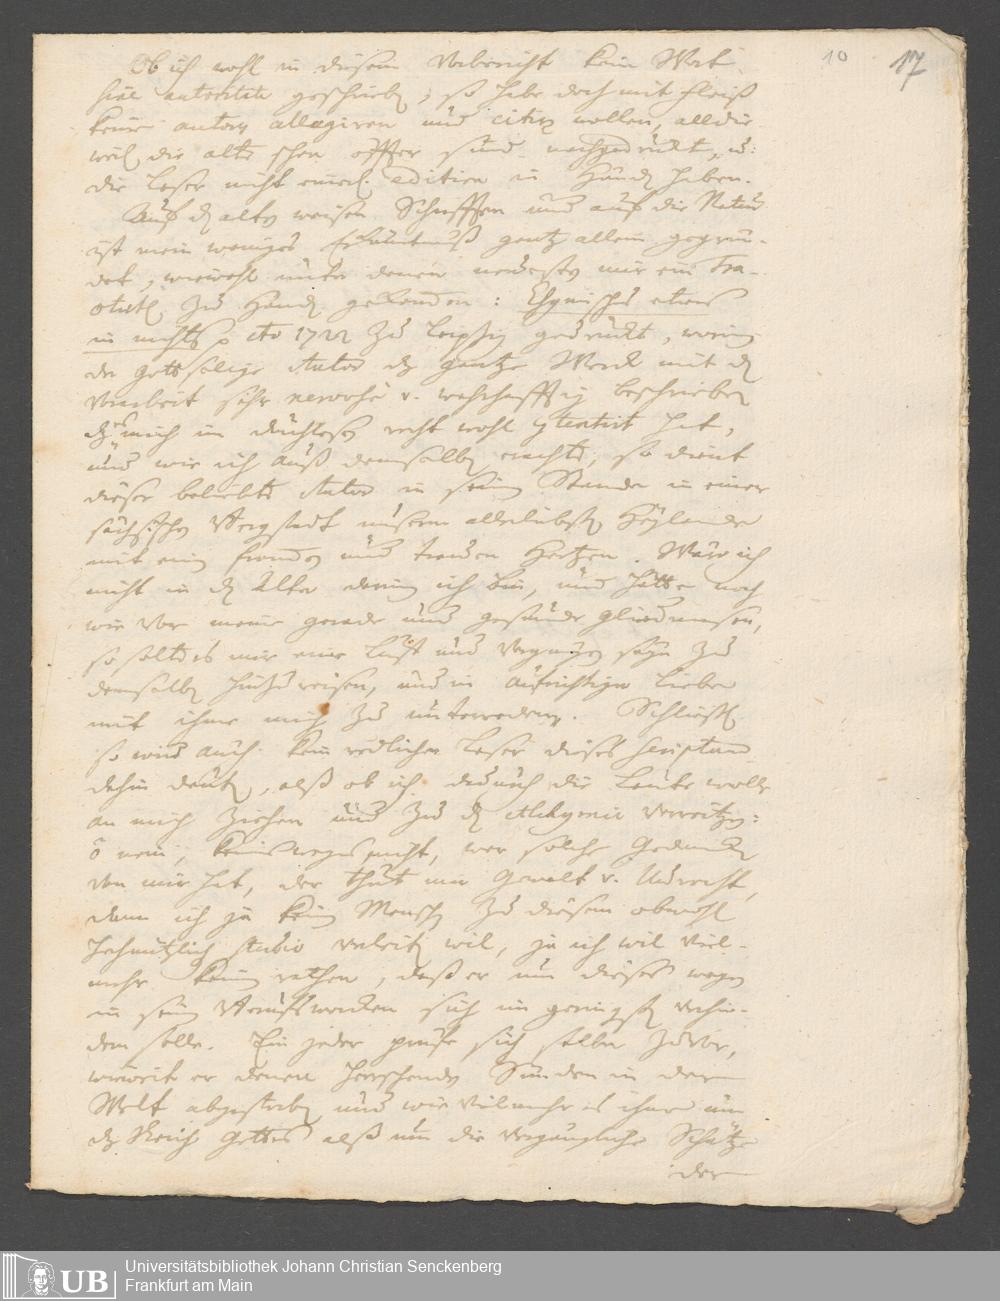 10 17
Ob ich wohl in diesem Vorbericht kein Wort
sine autoritate geschrieben, so habe doch mit fleiß
keine autores allegiren und citiren wollen, alldie
weil die alten schon öffter sind nachgedruckt, u:
die Leser nicht einerl. edition in Händen haben.
Auf der alten weisen Schrifften und auf die Natur
ist mein weniges Erkäntnuß gantz allein gegrün-
det, wiewohl unter denen neuesten mir ein Tra-
ctätl. zu Handen gekommen:
in nichts 1722 zu Leipzig gedruckt, worin
der gottselige Autor das gantze Werck mit der
Vorarbeit sehr v. wahrhafftig beschrieben
mich im durchlesen recht wohl hat,
und wie ich auß demselben, so dient
dieser beliebte Autor in seinem Stande in einer
sächsischen Bergstadt unserm allerliebsten Heylande
mit einem frommen und treuen Hertzen. Wäre ich
nicht in dem Alter darin ich bin, und hätte noch
wie vor meine gerade und gesunde gliedmasen,
so solte es mir eine Lust und Vergnügen seyn zu
demselben hinzureisen, und in aufrichtiger Liebe
mit ihme mich zu unterreden. Schließl.
so wird auch kein redlicher Leser dieses scriptum
dahin deuten, alß ob ich dadurch die Leute wolle
an mich ziehen und zu der Alchymie:
ô nein, keineswegs nicht, wer solche Gedancken
von mir hat, der thut mir Gewalt v. Unrecht,
denn ich ja keinen Menschen zu diesem obwohl
studio verleiten wil, ja ich wil viel-
mehr keinem rathen, daß er um dieses wegen
in seinen Beruffswercken sich im geringsten verhin-
dern solle. Ein jeder prüfe sich selber zuvor,
wieweit er denen herrschenden Sünden in der
Welt abgestorben und wie vielmehr es ihme um
das Reich Gottes alß um die vergängliche Schätze
der
UB
Universitätsbibliothek Johann Christian Senckenberg
Frankfurt am Main